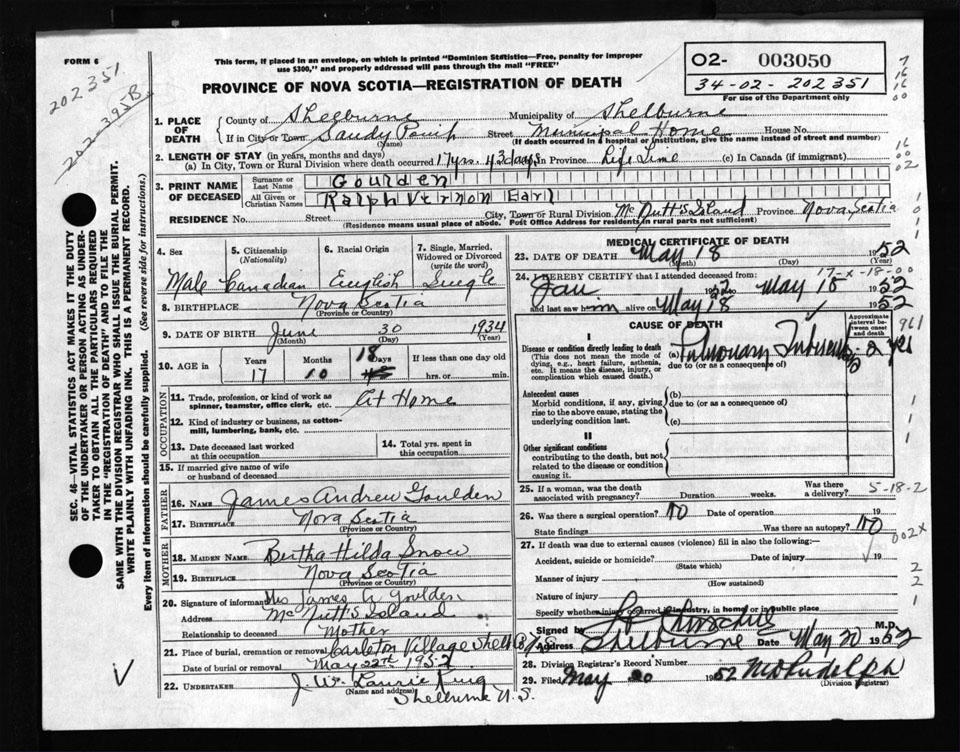 FORM 6
202351
202-395B
This form, if placed in an envelope, on which is printed "Dominion Statistics—Free, penalty for improper
use $300," and properly addressed will pass through the mail "FREE"
PROVINCE OF NOVA SCOTIA—REGISTRATION OF DEATH
O2- 003050
34-02-202351
For use of the Department only
1. PLACE OF DEATH
County of Shelburne Municipality of Shelburne
If in City or Town Sandy Point Street Municipal Home House No.
(Name) (If death occurred in a hospital or institution, give the name instead of street and number)
2. LENGTH OF STAY (in years, months and days)
(a) In City, Town or Rural Division where death occurred 17yrs. in Province Life Time (c) In Canada (if immigrant)
3. PRINT NAME OF DECEASED
Surname or Last Name Goulden
All Given or Christian Names Ralph Vernon Earl
RESIDENCE No. Street City, Town or Rural Division McNutt's Island Province Nova Scotia
(Residence means usual place of abode. Post Office Address for residents in rural parts not sufficient)
4. Sex 5. Citizenship (Nationality) 6. Racial Origin 7. Single, Married, Widowed or Divorced (write the word)
Male Canadian English Single
8. BIRTHPLACE Nova Scotia
(Province or Country)
9. DATE OF BIRTH June 30 1934
(Month) (Day) (Year)
10. AGE in Years Months Days If less than one day old
17 10 18 hrs. or min.
OCCUPATION
11. Trade, profession, or kind of work as spinner, teamster, office clerk, etc. At Home
12. Kind of industry or business, as cotton-mill, lumbering, bank, etc.
13. Date deceased last worked at this occupation 14. Total yrs. spent in this occupation
15. If married give name of wife or husband of deceased
FATHER
16. NAME James Andrew Goulden
17. BIRTHPLACE Nova Scotia
(Province or Country)
MOTHER
18. MAIDEN NAME Bertha Hilda Snow
19. BIRTHPLACE Nova Scotia
(Province or Country)
20. Signature of informant Mrs James A Goulden
Address McNutt's Island
Relationship to deceased Mother
21. Place of burial, cremation or removal Carleton Village Shel Co N.S.
Date of burial or removal May 22nd 1952
22. UNDERTAKER J. W. Laurie King
(Name and address) Shelburne N.S.
MEDICAL CERTIFICATE OF DEATH
23. DATE OF DEATH May 18 1952
(Month) (Day) (Year)
17-x-18-00
24. I HEREBY CERTIFY that I attended deceased from:
Jan 1952 to May 18 1952
and last saw him alive on May 18 1952
CAUSE OF DEATH
Approximate interval between onset and death
I
Disease or condition directly leading to death (a) Pulmonary Tuberculosis 2 yrs
(This does not mean the mode of dying, e.g., heart failure, asthenia, etc. It means the disease, injury, or complication which caused death.)
due to (or as a consequence of)
Antecedent causes (b)
Morbid conditions, if any, giving rise to the above cause, stating the underlying condition last.
due to (or as a consequence of)
(c)
II
Other significant conditions
contributing to the death, but not related to the disease or condition causing it.
25. If a woman, was the death associated with pregnancy? Duration weeks. Was there a delivery?
5-18-2
26. Was there a surgical operation? No Date of operation 19
State findings Was there an autopsy? No
002x
27. If death was due to external causes (violence) fill in also the following:
Accident, suicide or homicide? Date of injury 19
(State which)
Manner of injury
(How sustained)
Nature of injury
Specify whether injury occurred in industry, in home or in public place
Signed by M.D.
Address Shelburne Date May 20 1952
28. Division Registrar's Record Number
29. Filed May 20 1952
(Division Registrar)
SEC. 46—VITAL STATISTICS ACT MAKES IT THE DUTY
OF THE UNDERTAKER OR PERSON ACTING AS UNDER-
TAKER TO OBTAIN ALL THE PARTICULARS REQUIRED
IN THE "REGISTRATION OF DEATH" AND TO FILE THE
SAME WITH THE DIVISION REGISTRAR WHO SHALL ISSUE THE BURIAL PERMIT.
WRITE PLAINLY WITH UNFADING INK. THIS IS A PERMANENT RECORD.
Every item of information should be carefully supplied. (See reverse side for instructions.)